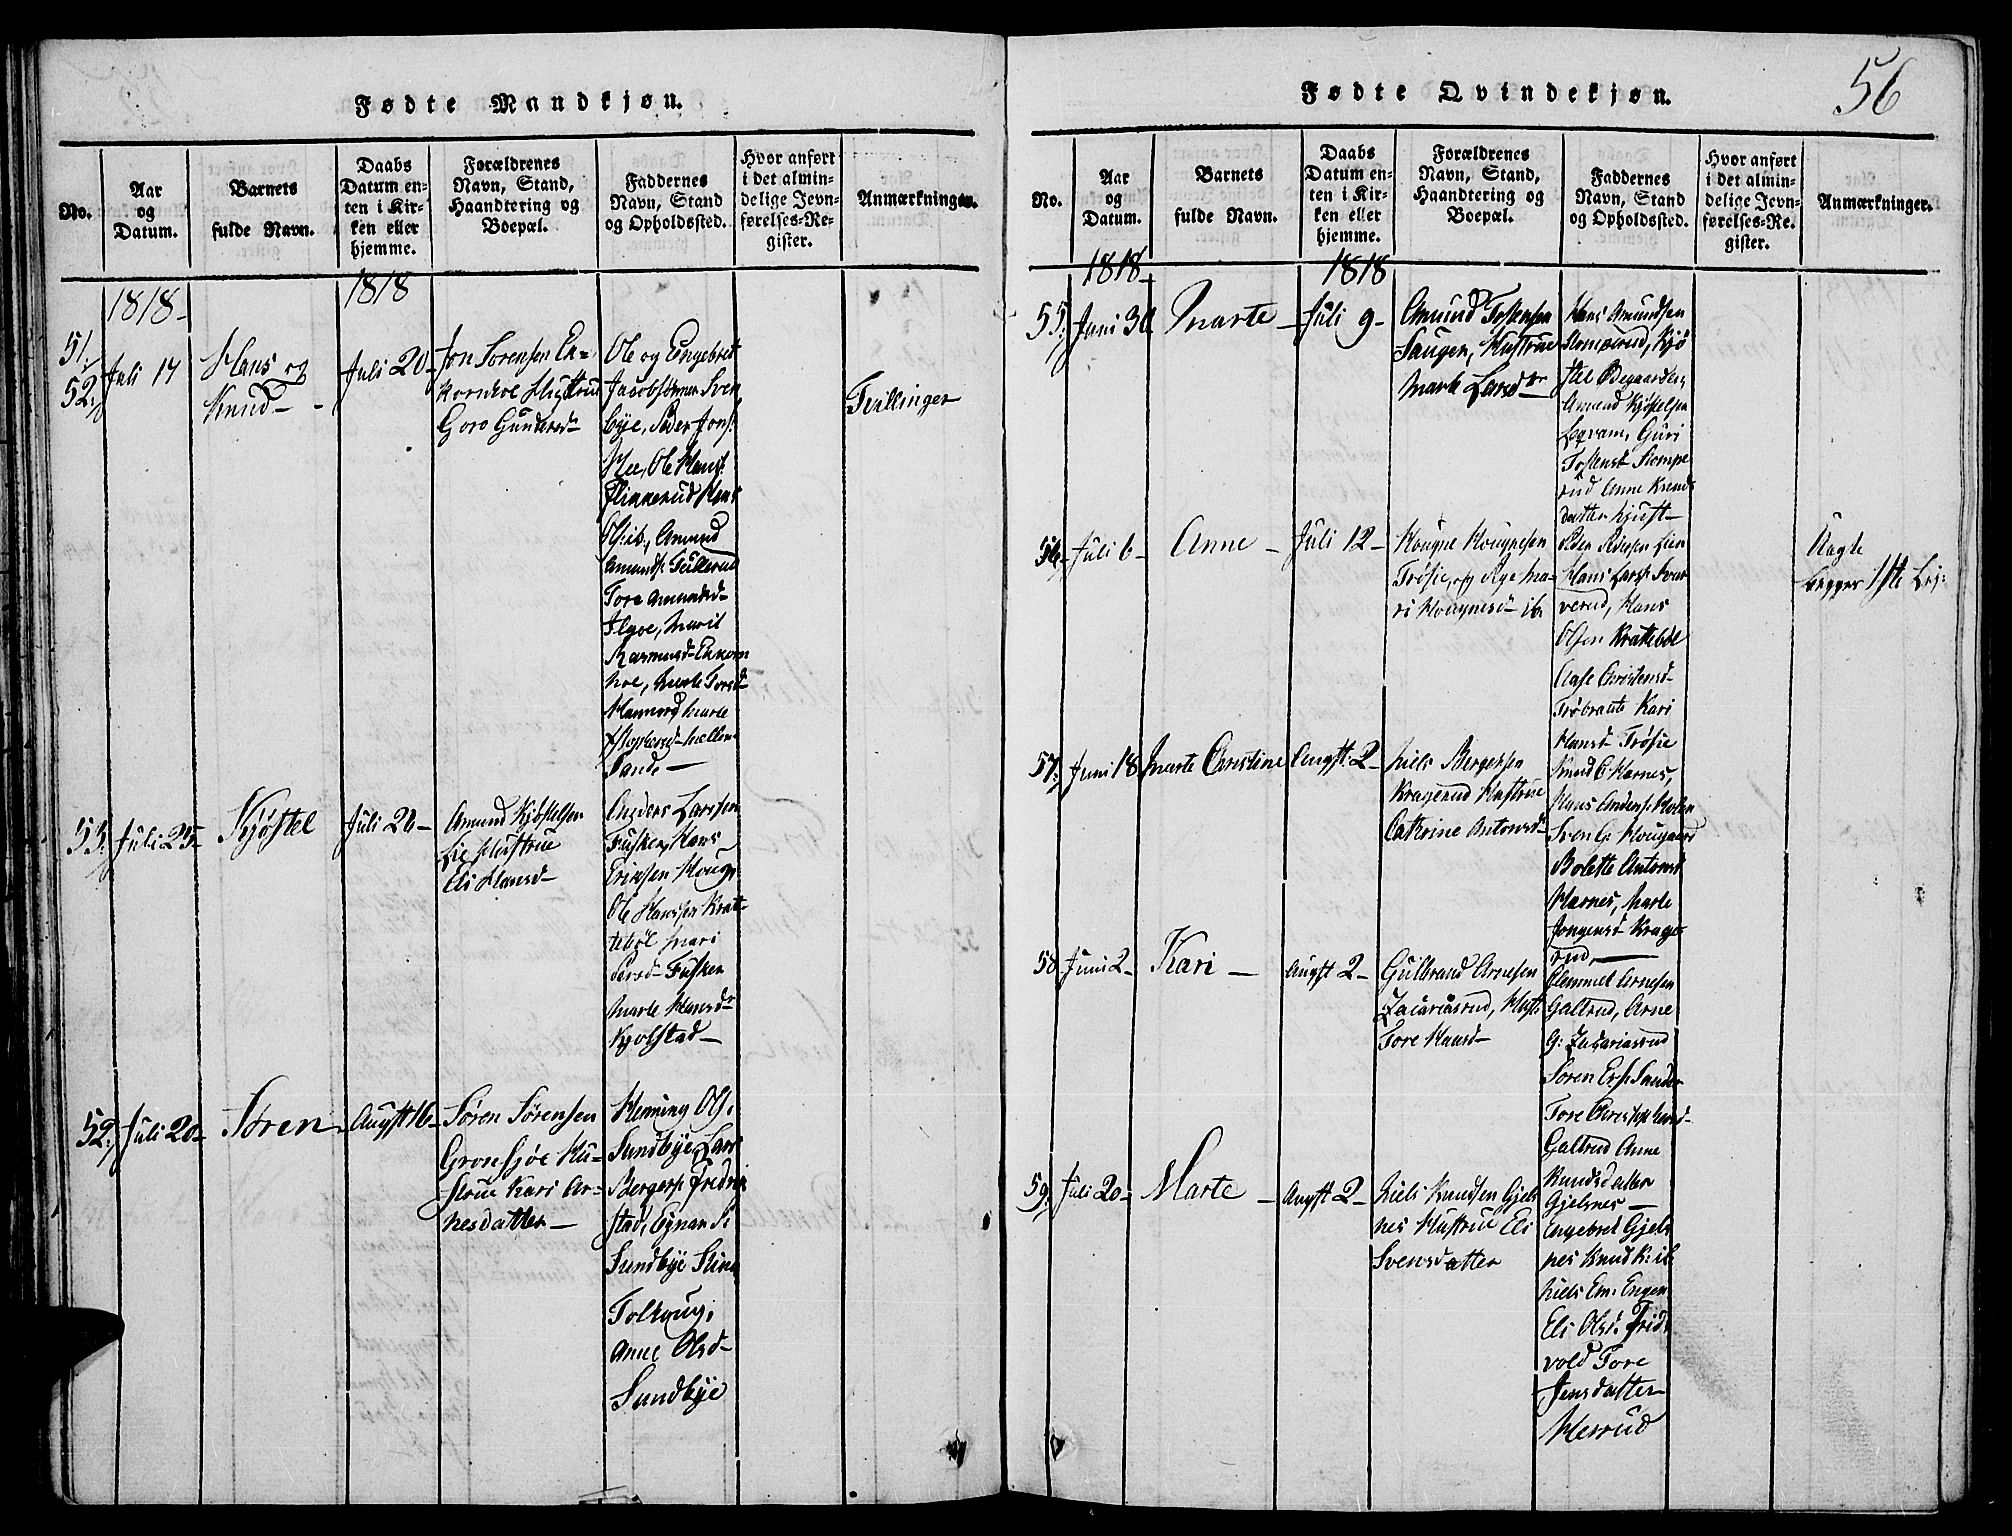 Fødte Mandkjøn.
No.
Aar
og
Datum.
Barnets
fulde Navn.
Daabs
Datum en-
ten i Kir-
ken eller
hjemme.
Forældrenes
Navn, Stand,
Haandtering og
Boepæl.
Faddernes
Navn, Stand
og Opholdssted.
Hvor anført
i det almin-
delige Jevn-
førelses-Re-
gister.
Anmærkninger.
1818
1818
51.
52.
Juli 14
Hans og
Knud
Juli 20
Jon Sørensen
Hustrue
Goro Gundersd
Ole og Engebret
Jacobsønner Sven
bye, Peder Jons.
Moe, Ole Hans.
Flikkerud Hans
Amund
Amunds.
Tore Amundsd
Marit
Rasmusd
hoe, Marte Torsd
Marte
Sande
Tvillinger
53.
Juli 25
Kjøstel
Juli 26
Amund Kjøstelsen
Lie Hustrue
Eli Hansd
Anders Larssen
Fusker, Hans
Erichsen Houg
Ole Hanssen Krat-
tebøl Mari
Fusker
Marte Hansdr
Kjolstad
52.
Juli 20
Søren
Augst 16
Søren Sørensen
Gronsjøe Hu-
strue Kari Ar-
nesdatter
Henning Ols.
Sundbye, Lars
Bergers. Fredrik
stad, Egnar S.
Sundbye Stina
Tolhoug,
Anne Olsd
Sundbye
56
Fødte Qvindekjøn.
No.
Aar
og
Datum.
Barnets
fulde Navn.
Daabs
Datum en-
ten i Kir-
ken eller
hjemme.
Forældrenes
Navn, Stand,
Haandtering og
Boepæl.
Faddernes
Navn, Stand
og Opholdssted.
Hvor anført
i det almin-
delige Jevn-
førelses-Re-
gister.
Anmærkninger.
1818
1818
55.
Juni 30
Marte
Juli 9
Amund Tostensen
Haugen, Hustrue
Marte Larsdr
Hans Amundsen
Stomperud, Kjø
stel Ødegaarden,
Amund Kjøstelsen
Guri
Tostensd Stompe
rud Anne Knuds
datter
56
Juli 6
Anne
Juli 12
Hougne Hougnesen
Trøsie, og Pige Ma-
ri Hougnesd ib.
Peder Pedersen Lien
Hans Larss. Svar
verud, Hans
Olsen Krattebøl
Aase Christensd
Trøbraate Kari
Hansd Trøsie
Uagte
begges 1ste Lej:
57.
Juni 18
Marte Christine
Augst 2
Niels Bergersen
Kragerud Hustrue
Cathrine Antonsdr
Knud O Harnes,
Hans Anders. Holen
Sven G. Hougaard
Bolette Antonsd
Harnes, Marte
Jongensd Krage-
rud,
58
Juni 2
Kari
Augst 2
Gulbrand Arnesen
Zacariasrud, Hust.
Tore Hansd
Clemmet Arnesen
Galtrud, Arne
G: Zachariasrud
Søren Ers. Sander
Tore Christophersd
Galtrud Anne
Knudsdatter
Gjelsnes
59.
Juli 20
Marte
Augst 2
Niels Knudsen Gjels
nes Hustrue Eli
Svensdatter
Engebret Gjels
nes Knud K: ib.
Niels Em. Engen
Eli Olsd. Frid
vold Tore
Jensdatter
Herrud